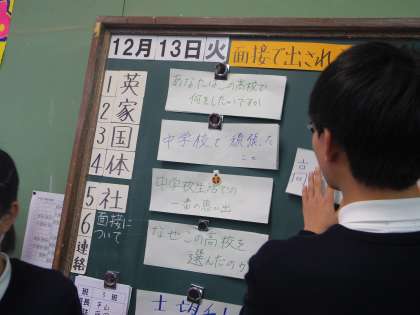 12月13日火
面接で出され
1 英
2 家
3 国
4 体
5 社
6 面接に
ついて
連絡
あなたはこの高校で
何をしたいですか
中学校で頑張った
こと
中学校生活での
一番の思い出
なぜこの高校を
選んだのか
高